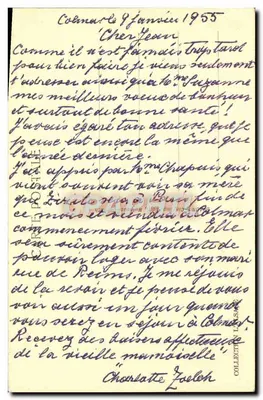 Colmar le 9 janvier 1955
Cher Jean
Comme il n'est jamais trop tard
pour bien faire je viens seulement
t'adresser ainsi qu'à Mme Suzanne
mes meilleurs voeux de bonheur
et surtout de bonne santé!
J'avais égaré ton adresse que je
pense est encore la même que
l'année dernière.
J'ai appris par Mme Chapuis qui
vient souvent voir sa mère
que
ce mois viendra à Colmar
commencement février. Elle
sera sûrement contente de
pouvoir loger avec son mari
rue de Reims. Je me réjouis
de la revoir et je pense de vous
voir aussi un jour quand
vous serez en séjour à Colmar.
Recevez des baisers affectueux
de la vieille mamoiselle
"Charlotte
CARTE POSTALE
COLLECT